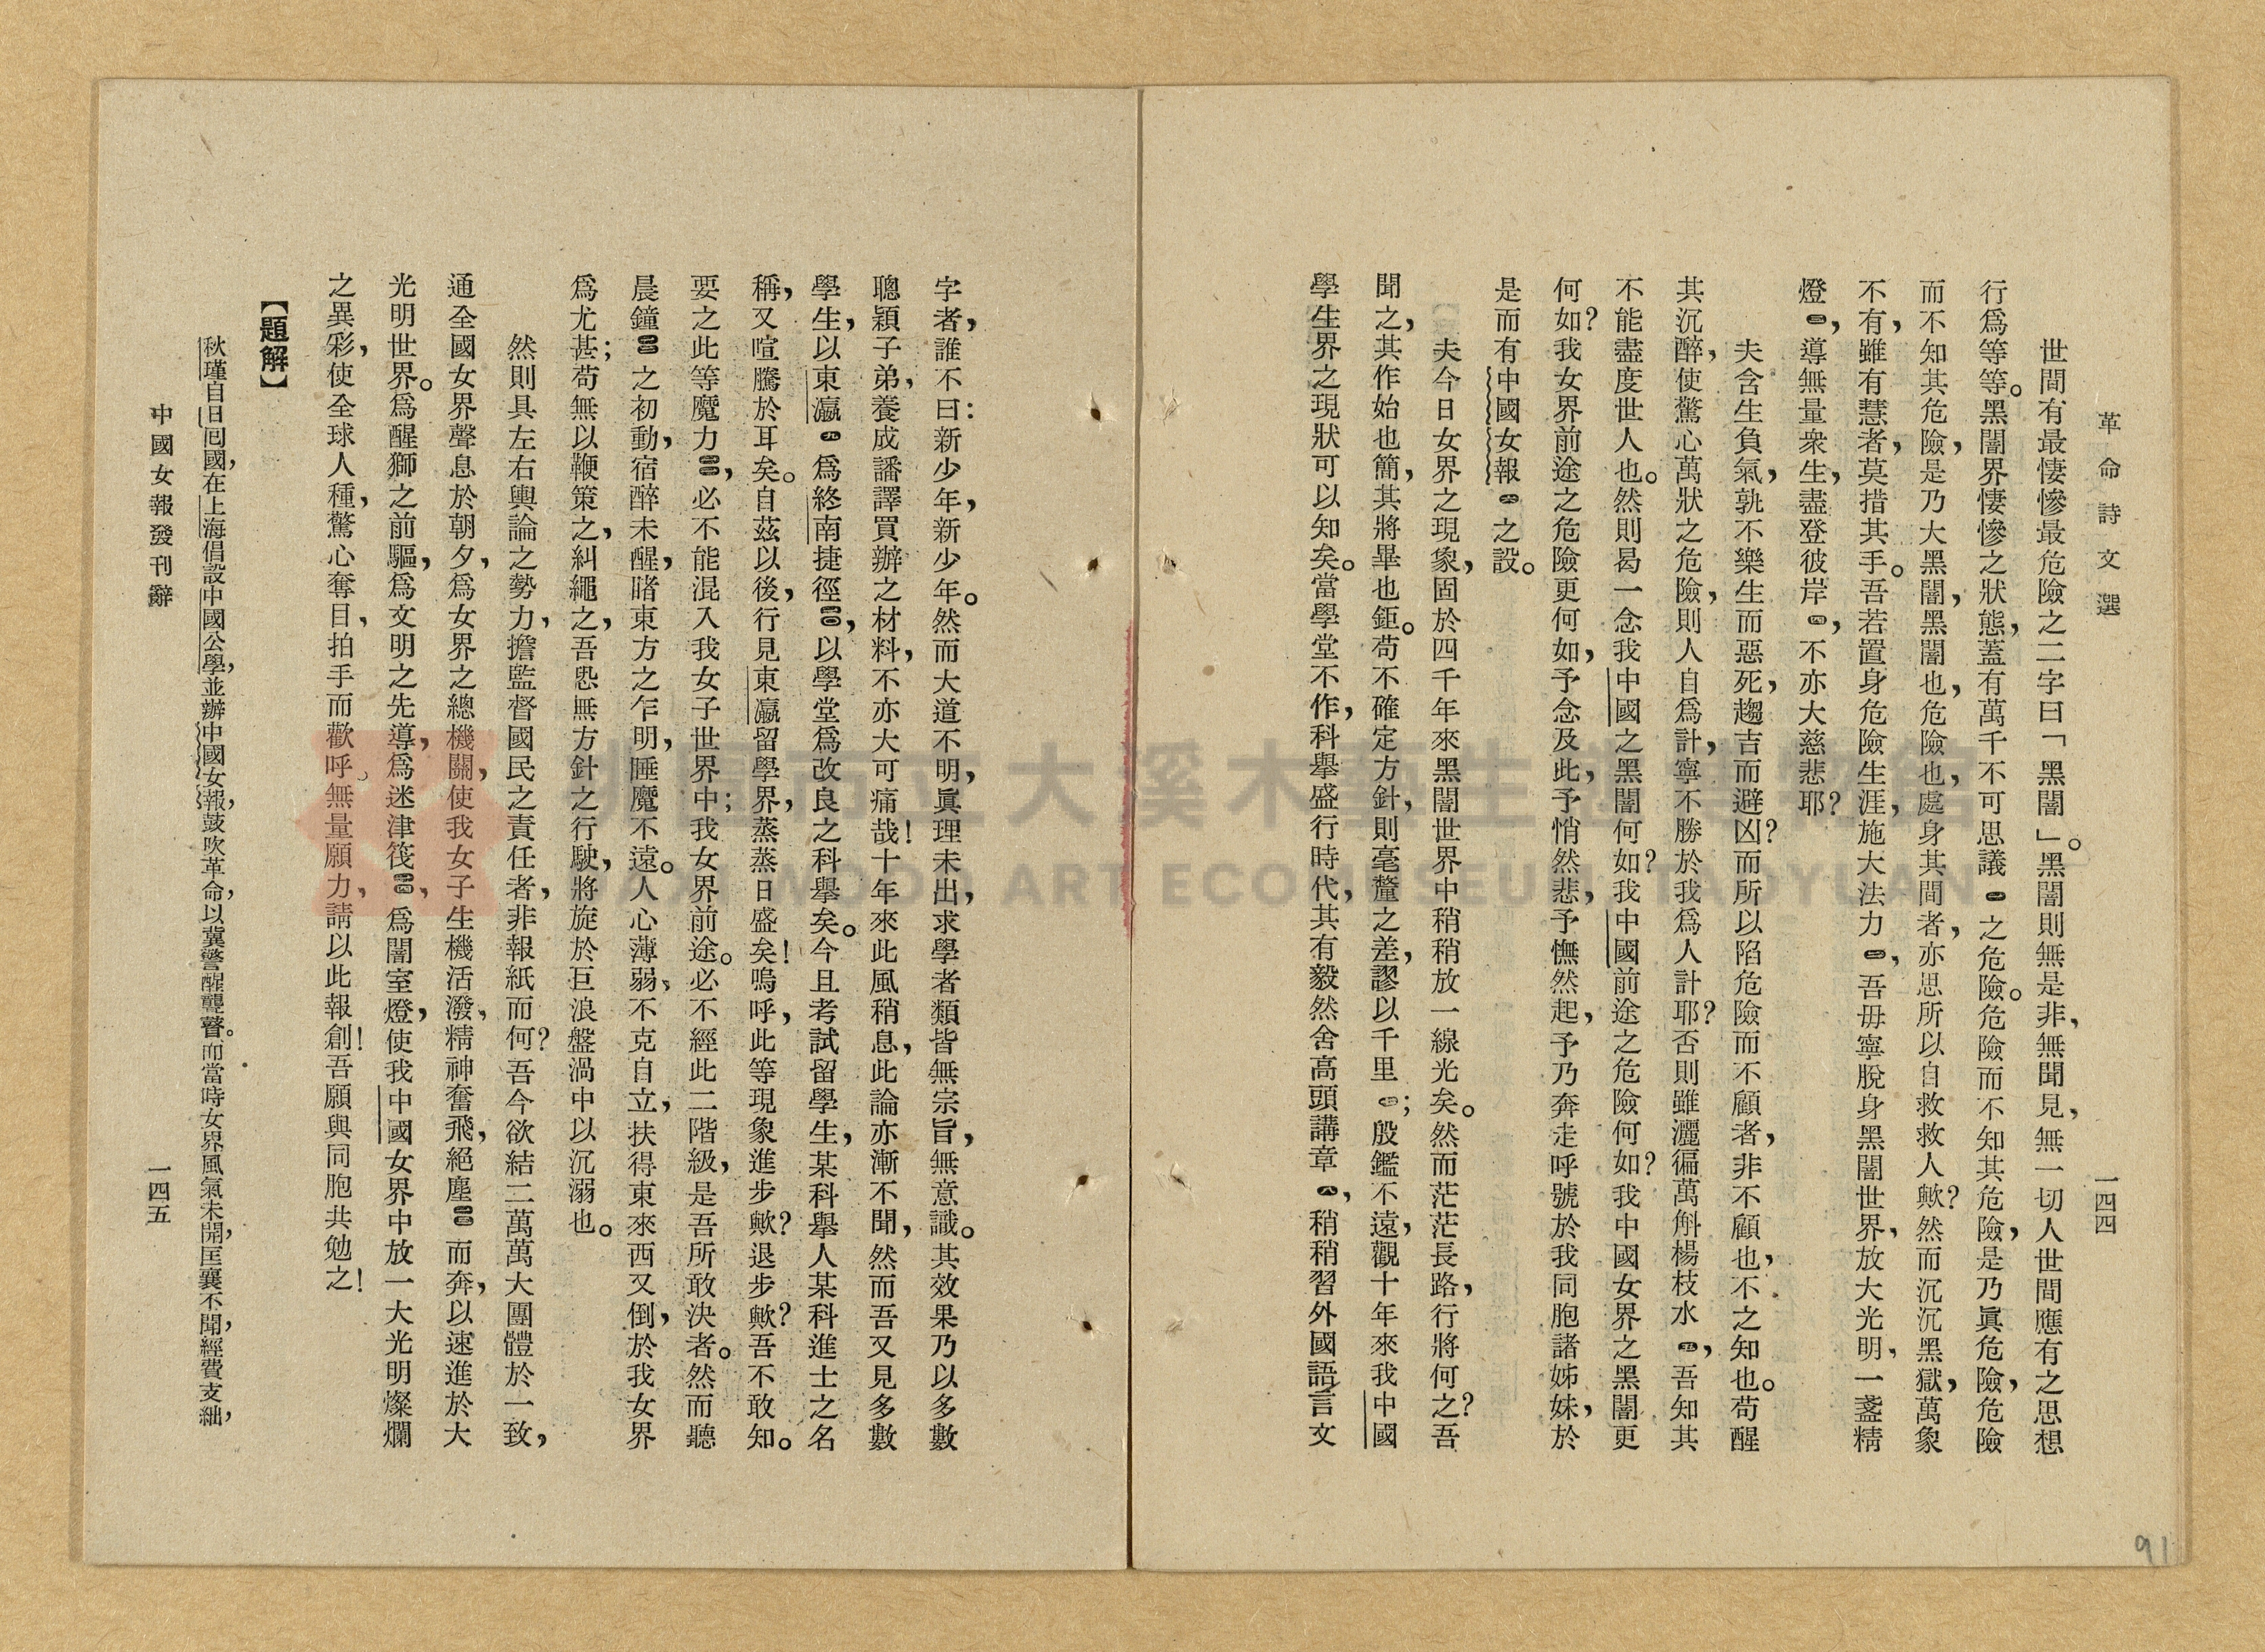 革命詩文選
一四四
世間有最悽慘最危險之二字曰「黑闇」。黑闇則無是非，無聞見，無一切人世間應有之思想
行爲等等。黑闇界悽慘之狀態，蓋有萬千不可思議㊀之危險。危險而不知其危險，是乃眞危險，危險
而不知其危險，是乃大黑闇，黑闇也，危險也，處身其間者，亦思所以自救救人歟？然而沉沉黑獄，萬象
不有，雖有慧者，莫措其手。吾若置身危險生涯，施大法力㊁，吾毋寧脫身黑闇世界，放大光明，一盞精
燈㊂，導無量衆生，盡登彼岸㊃，不亦大慈悲耶？
夫含生負氣，孰不樂生而惡死，趨吉而避凶？而所以陷危險而不顧者，非不顧也，不之知也。苟醒
其沉醉，使驚心萬狀之危險，則人自爲計，寧不勝於我爲人計耶？否則雖灑徧萬斛楊枝水㊄，吾知其
不能盡度世人也。然則曷一念我中國之黑闇何如？我中國前途之危險何如？我中國女界之黑闇更
何如？我女界前途之危險更何如，予念及此，予悄然悲，予憮然起，予乃奔走呼號於我同胞諸姊妹，於
是而有中國女報㊅之設。
夫今日女界之現象，固於四千年來黑闇世界中稍稍放一線光矣。然而茫茫長路，行將何之？吾
聞之，其作始也簡，其將畢也鉅。苟不確定方針，則毫釐之差，謬以千里㊆；殷鑑不遠，觀十年來我中國
學生界之現狀可以知矣。當學堂不作，科舉盛行時代，其有毅然舍高頭講章㊇，稍稍習外國語言文
字者，誰不曰：新少年，新少年。然而大道不明，眞理未出，求學者類皆無宗旨，無意識。其效果乃以多數
聰穎子弟，養成繙譯買辦之材料，不亦大可痛哉！十年來此風稍息，此論亦漸不聞，然而吾又見多數
學生，以東瀛㊈爲終南捷徑㊉，以學堂爲改良之科舉矣。今且考試留學生，某科舉人某科進士之名
稱，又喧騰於耳矣。自茲以後，行見東瀛留學界，蒸蒸日盛矣！嗚呼，此等現象進步歟？退步歟？吾不敢知。
要之此等魔力，必不能混入我女子世界中；我女界前途。必不經此二階級，是吾所敢決者。然而聽
晨鐘之初動，宿醉未醒，睹東方之乍明，睡魔不遠。人心薄弱，不克自立，扶得東來西又倒，於我女界
爲尤甚；苟無以鞭策之，糾繩之，吾恐無方針之行駛，將旋於巨浪盤渦中以沉溺也。
然則具左右輿論之勢力，擔監督國民之責任者，非報紙而何？吾今欲結二萬萬大團體於一致，
通全國女界聲息於朝夕，爲女界之總機關，使我女子生機活潑，精神奮飛，絕塵而奔，以速進於大
光明世界。爲醒獅之前驅，爲文明之先導，爲迷津筏，爲闇室燈，使我中國女界中放一大光明燦爛
之異彩，使全球人種，驚心奪目，拍手而歡呼。無量願力，請以此報創！吾願與同胞共勉之！
【題解】
秋瑾自日囘國，在上海倡設中國公學，並辦中國女報，鼓吹革命，以冀警醒聾瞽。而當時女界風氣未開，匡襄不聞，經費支絀，
中國女報發刊辭
一四五
91
桃園市立大溪木藝生態博物館
DAXI WOOD ART ECOMUSEUM, TAOYUAN